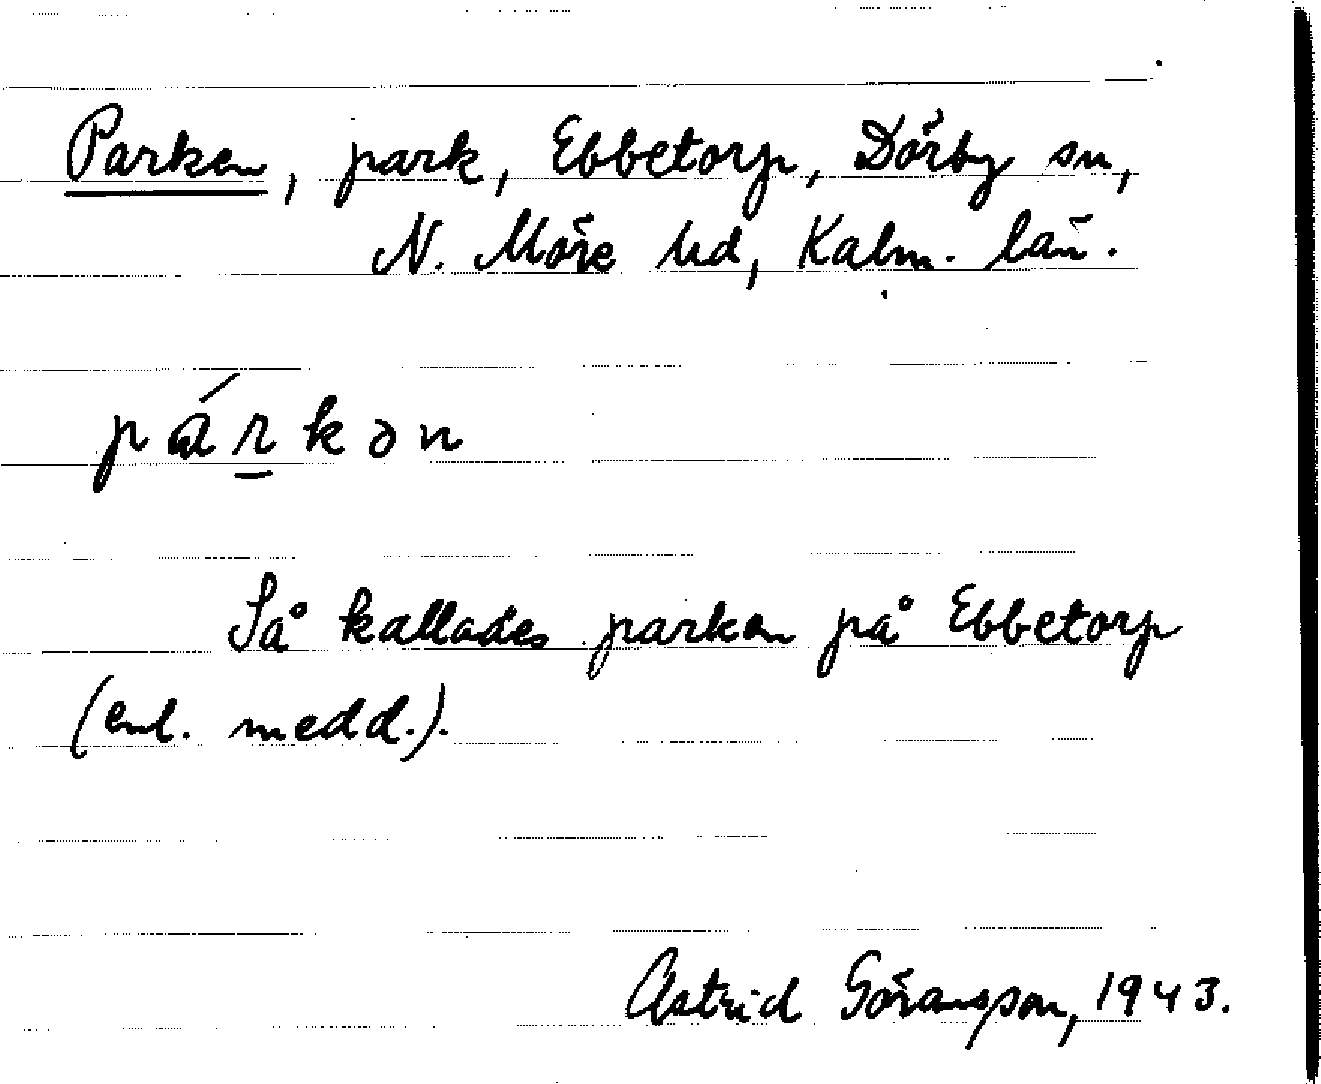 Parken, park, Ebbetorp, Dörby sn,
N. Möre hd, Kalm. län.
párkən
Så kallades parken på Ebbetorp
(enl. medd.).
Astrid Göransson, 1943.